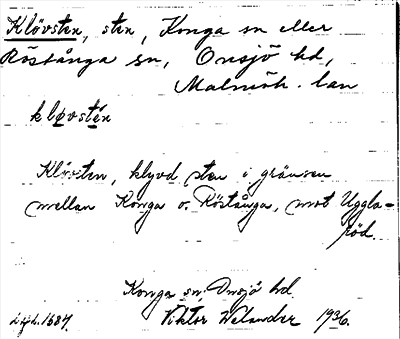 Klövsten, sten, Konga sn eller
Röstånga sn, Onsjö hd,
Malmöh. län
kløvstén
Klövsten, kluvd sten i gränsen
mellan Konga o. Röstånga, mot Uggla-
röd.
Konga sn, Onsjö hd
Viktor Welander 1936.